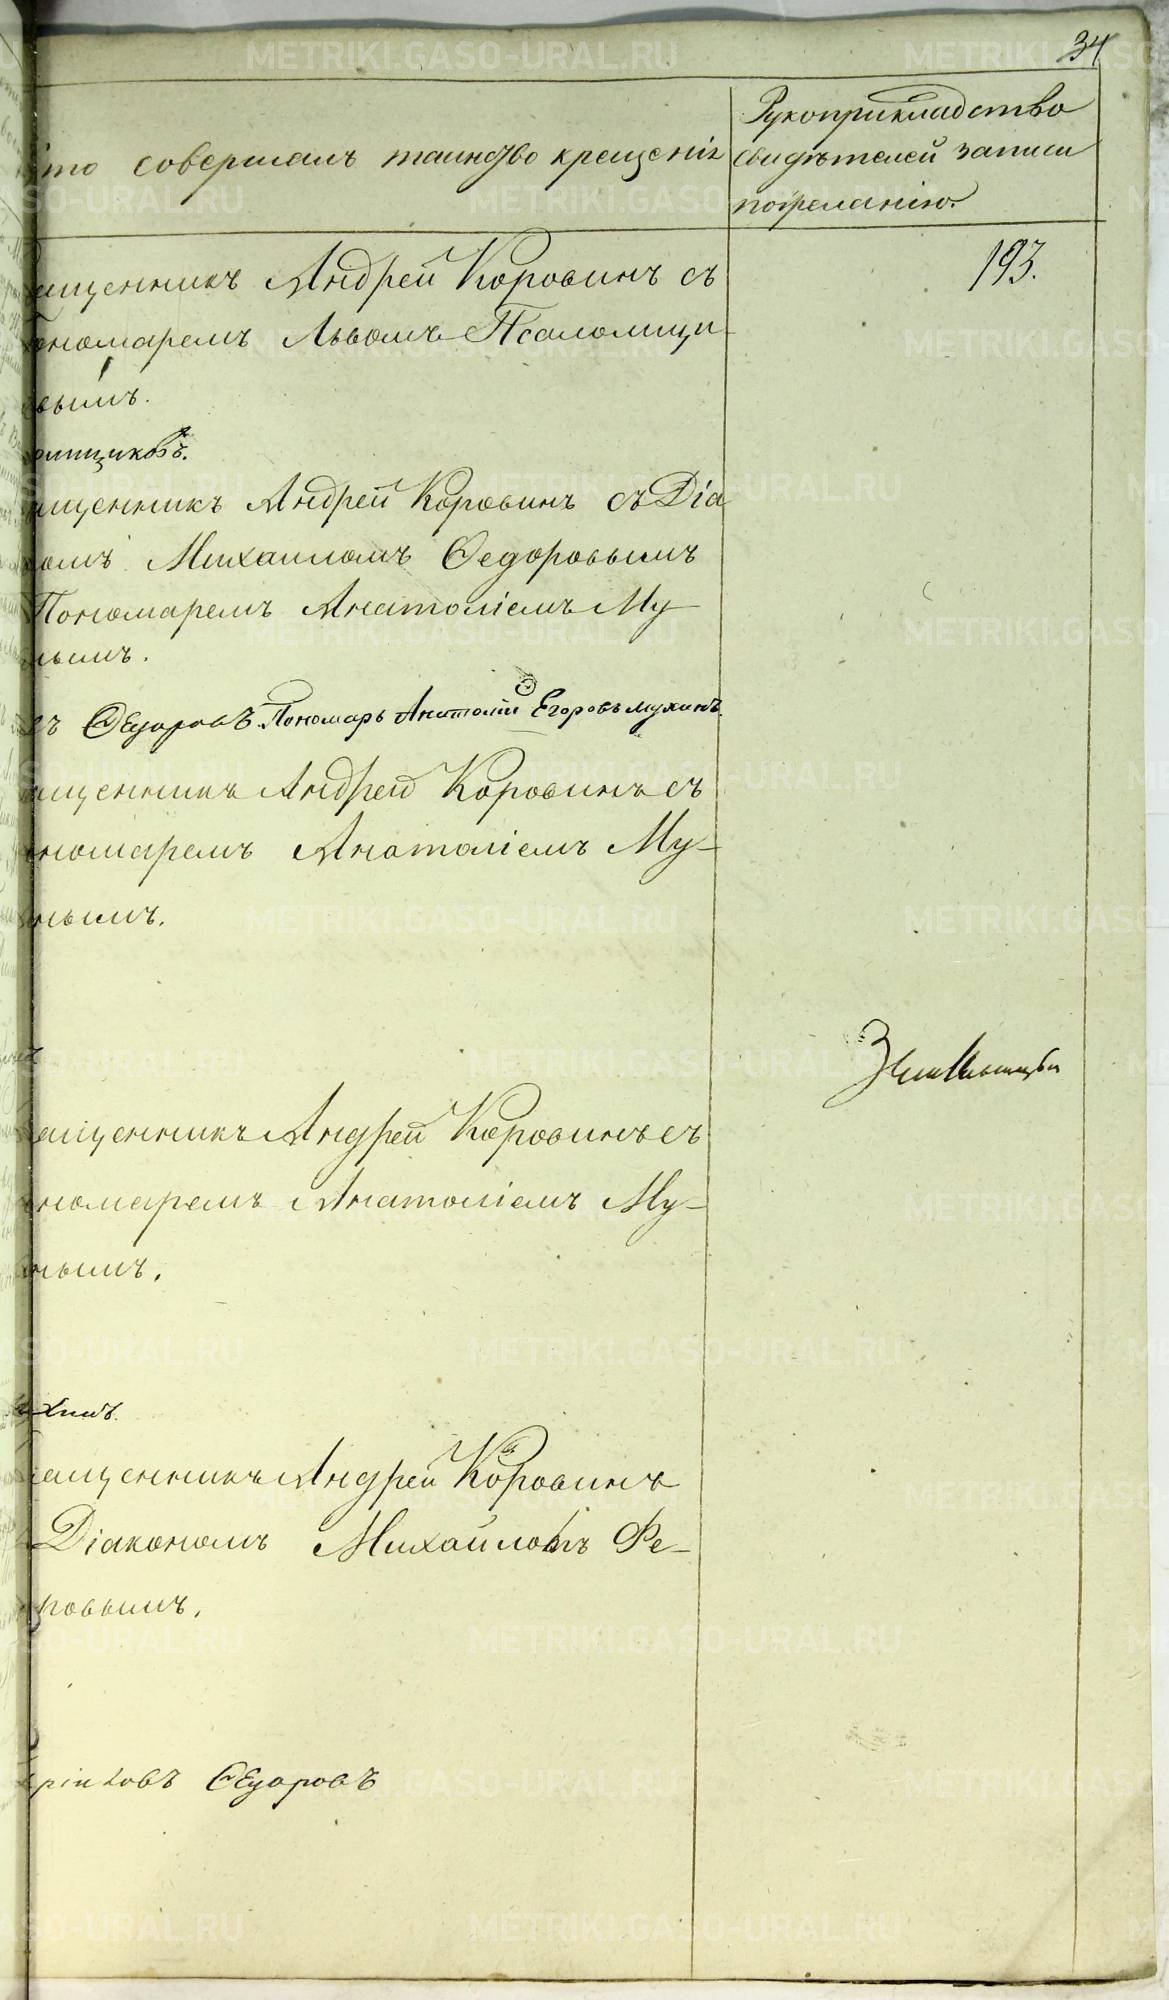 34
то совершалъ таинство крещенія
Рукоприкладство
свидѣтелей записи
по желанію.
193.
ященникъ Андрей Коровинъ съ
ономаремъ Львомъ Псаломщи
вымъ.
ященникъ Андрей Коровинъ съ Діа
омъ Михаиломъ Ѳедоровымъ
Пономаремъ Анатоліемъ Му
ымъ.
ъ Ѳедоровъ. Пономарь Анатолій Егоровъ Мухинъ.
ященникъ Андрей Коровинъ съ
номаремъ Анатоліемъ Му-
нымъ.
ященникъ Андрей Коровинъ съ
номаремъ Анатоліемъ Му-
нымъ.
хинъ.
ященникъ Андрей Коровинъ
Діакономъ Михайломъ Ѳе-
ровымъ.
Ѳедоровъ
METRIKI.GASO-URAL.RU